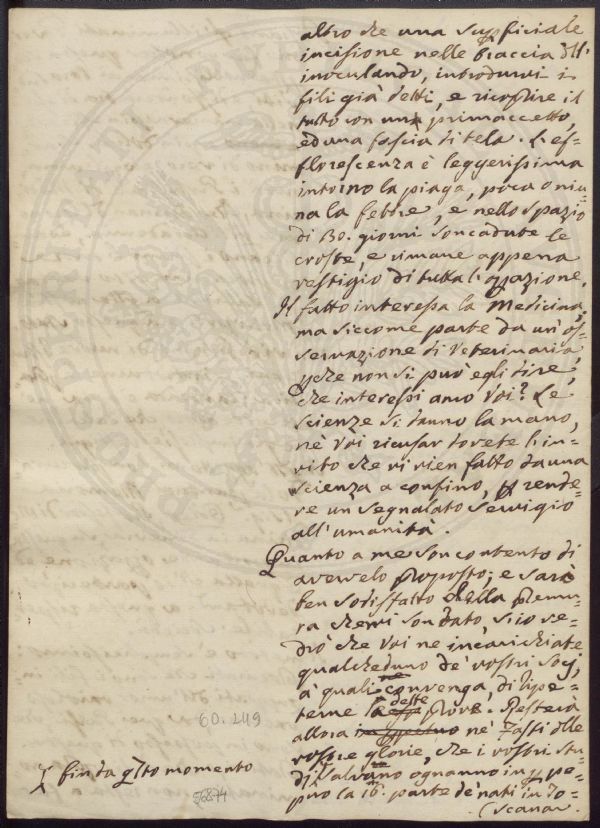 altro che una supficiale
incisione nelle braccia dll'
inoculando, introdurvi i
fili già detti, e ricoprire il
tutto con un primaccetto,
ed una fascia di tela. L'es=
florescenza è leggerissima
intorno la piaga, poca o niu=
na la febbre, e nello spazio
di 30. giorni son cadute le
croste, e rimane appena
vestigio di tutta l'opazione.
Il fatto interessa la Medicina,
ma siccome parte da un'os=
servazione di Veterinaria,
che non si può egli dire,
che interessi anco Voi? Le
scienze si danno la mano,
nè Voi ricusar dovete l'in=
vito che vi vien fatto da una
scienza a confino, p rende=
re un segnalato servigio
all'umanità.
Quanto a me son contento di
avervelo proposto; e sarò
ben sodisfatto della premu=
ra che mi son dato, s'io ve=
drò che Voi ne incarichiate
qualcheduno de' vostri Socj,
a' quali ne convenga, di ripe=
terne le deste prove. Resterà
allora nè Fasti dlle
vostre glorie, che i vostri stu=
dj salvano ogn'anno in
la 16. parte de' nati in To=
scana.
fin da qsto momento
60.249
56874